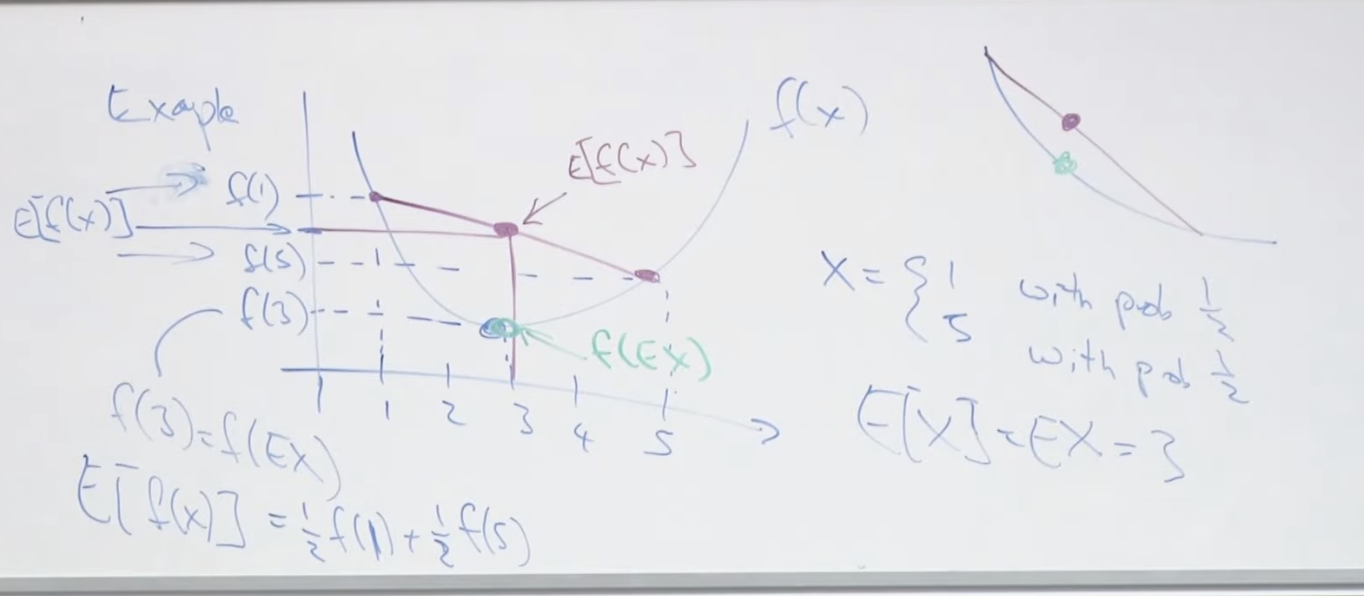 Example
f(x)
E[f(x)]
f(1)
E[f(x)]
f(5)
f(3)
f(EX)
1 2 3 4 5
f(3)=f(EX)
E[f(x)] = 1/2 f(1) + 1/2 f(5)
X = { 1 with prob 1/2
5 with prob 1/2
E[X] = EX = 3